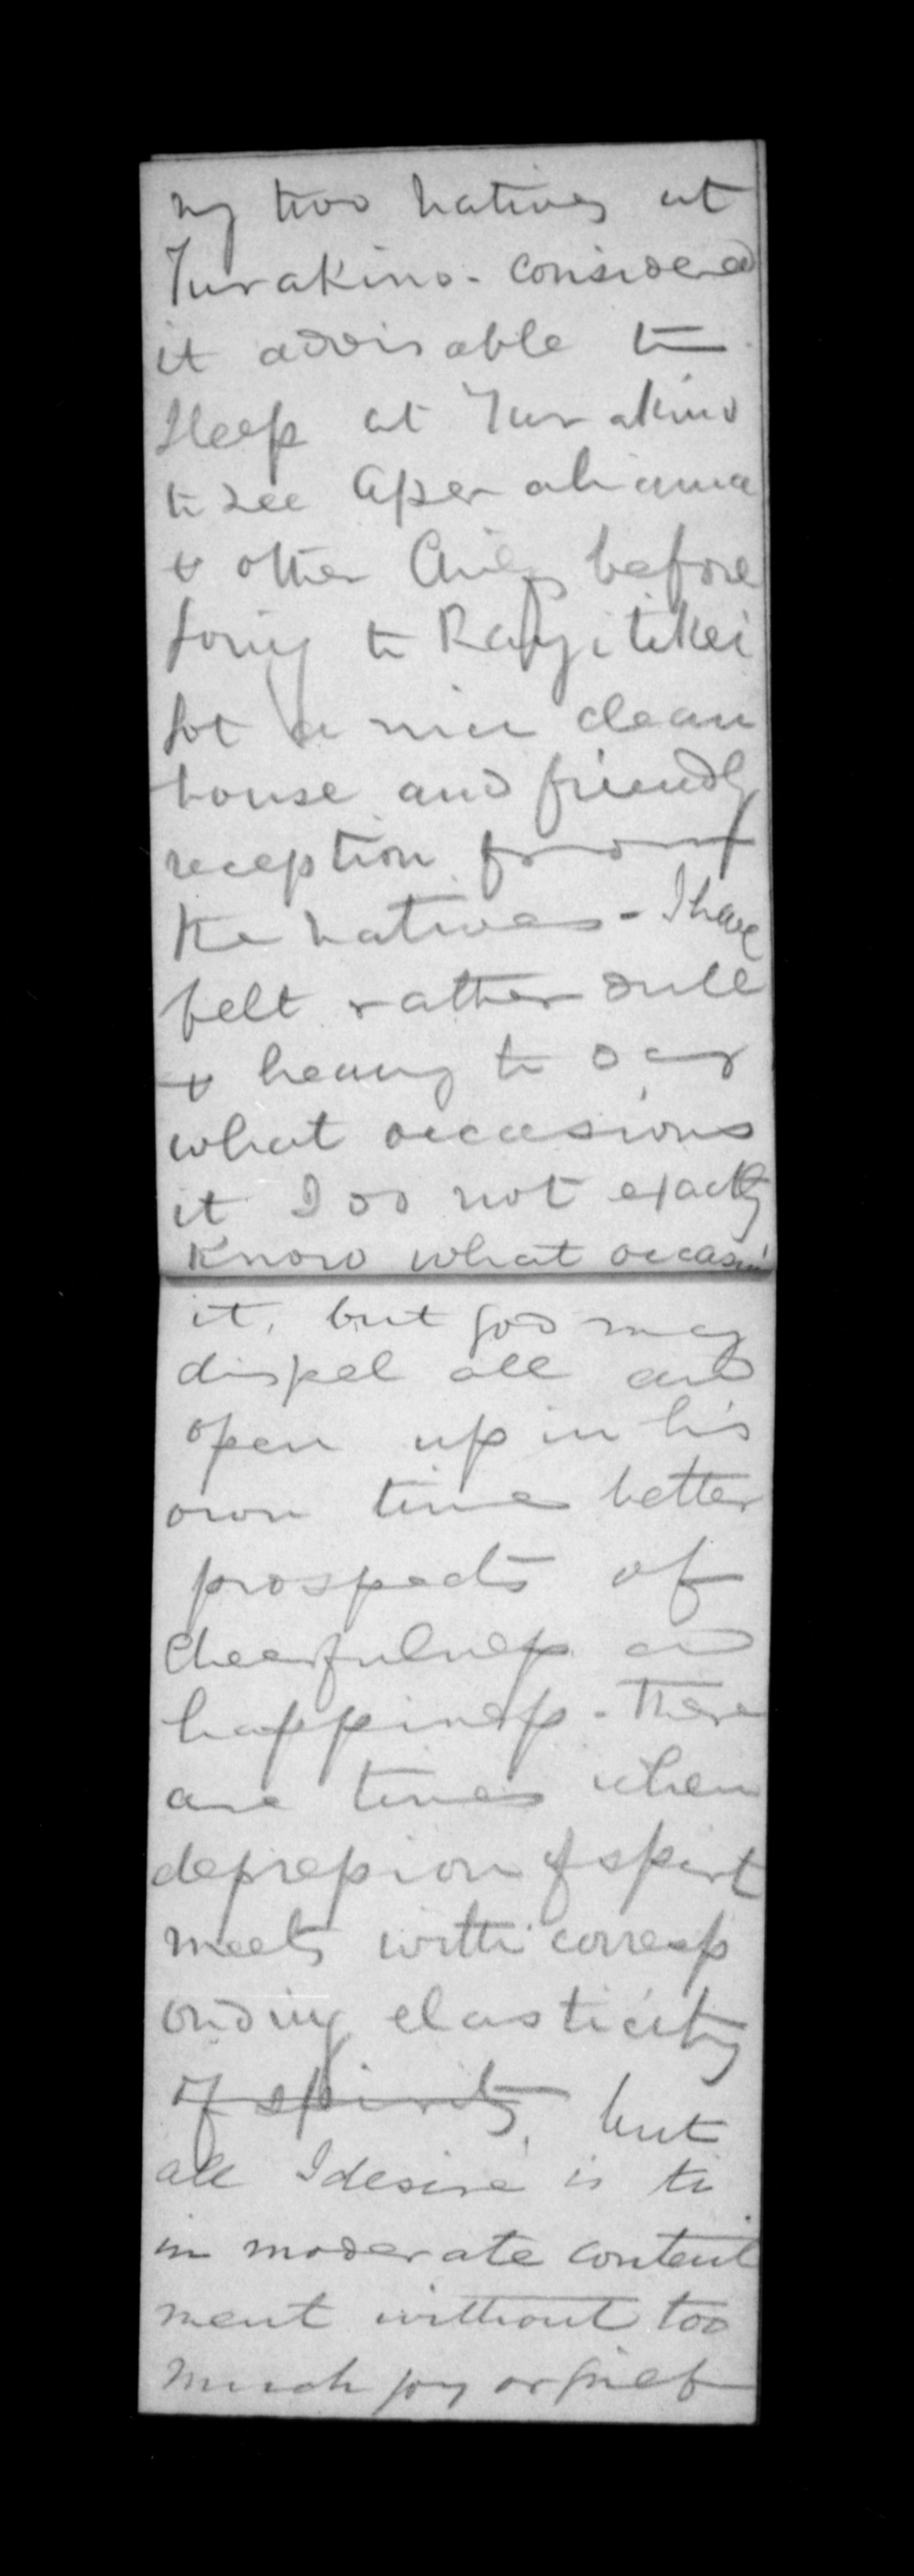 my two natives at
Turakino - considered
it advisable to
sleep at Turakino
to see Aperahama
& other Chiefs before
going to Rangitikei
got a nice clean
house and friendly
reception from
the natives - I have
felt rather dull
& heavy to day
what occasions
it I do not exactly
know what occasions
it, but god may
dispel all and
open up in his
own time better
prospects of
cheerfulness and
happiness - There
are times when
depression of spirit
meets with corresp
onding elasticity
of spirits, but
all I desire is to
in moderate content
ment without too
much joy or grief